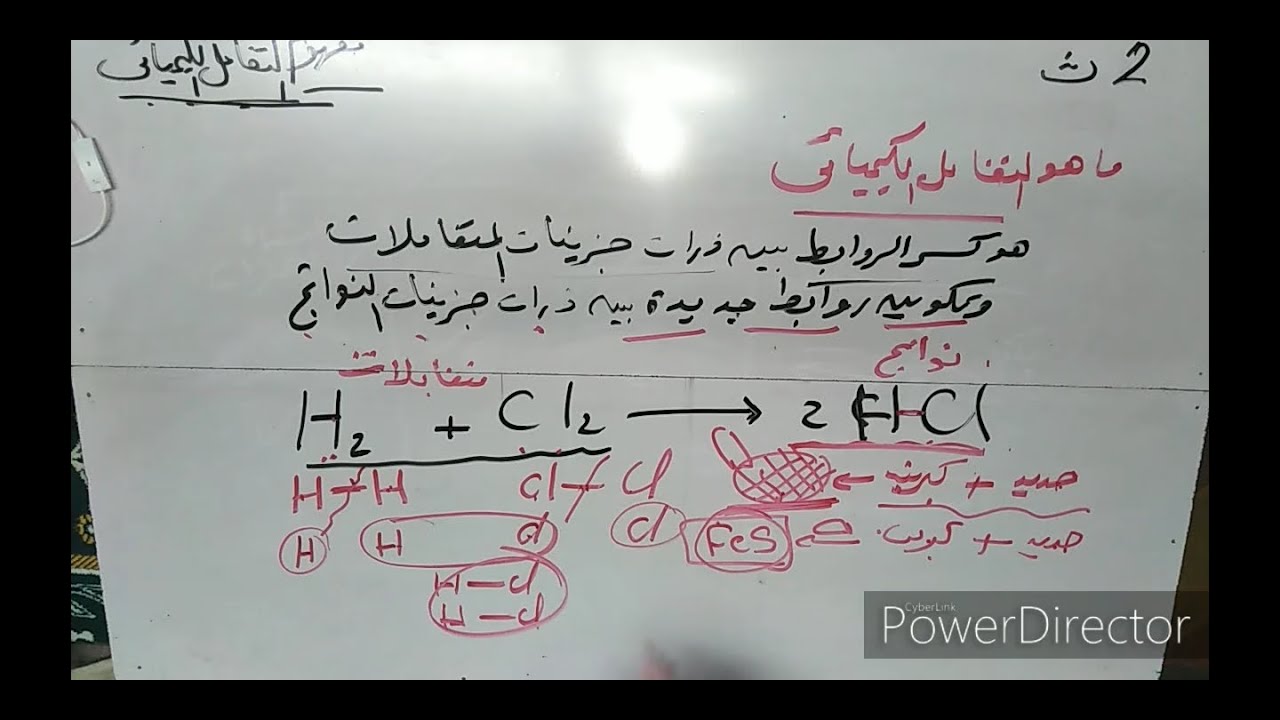 2 ث
مفهوم التفاعل الكيميائى
ما هو التفاعل الكيميائى
هو كسر الروابط بين ذرات جزيئات المتفاعلات
وتكوين روابط جديدة بين ذرات جزيئات النواتج
متفاعلات
نواتج
H2 + Cl2 → 2 H-Cl
H-H Cl-Cl
حديد + كبريت ←
H H Cl Cl
حديد + كبريت FeS
H-Cl
H-Cl
CyberLink
PowerDirector